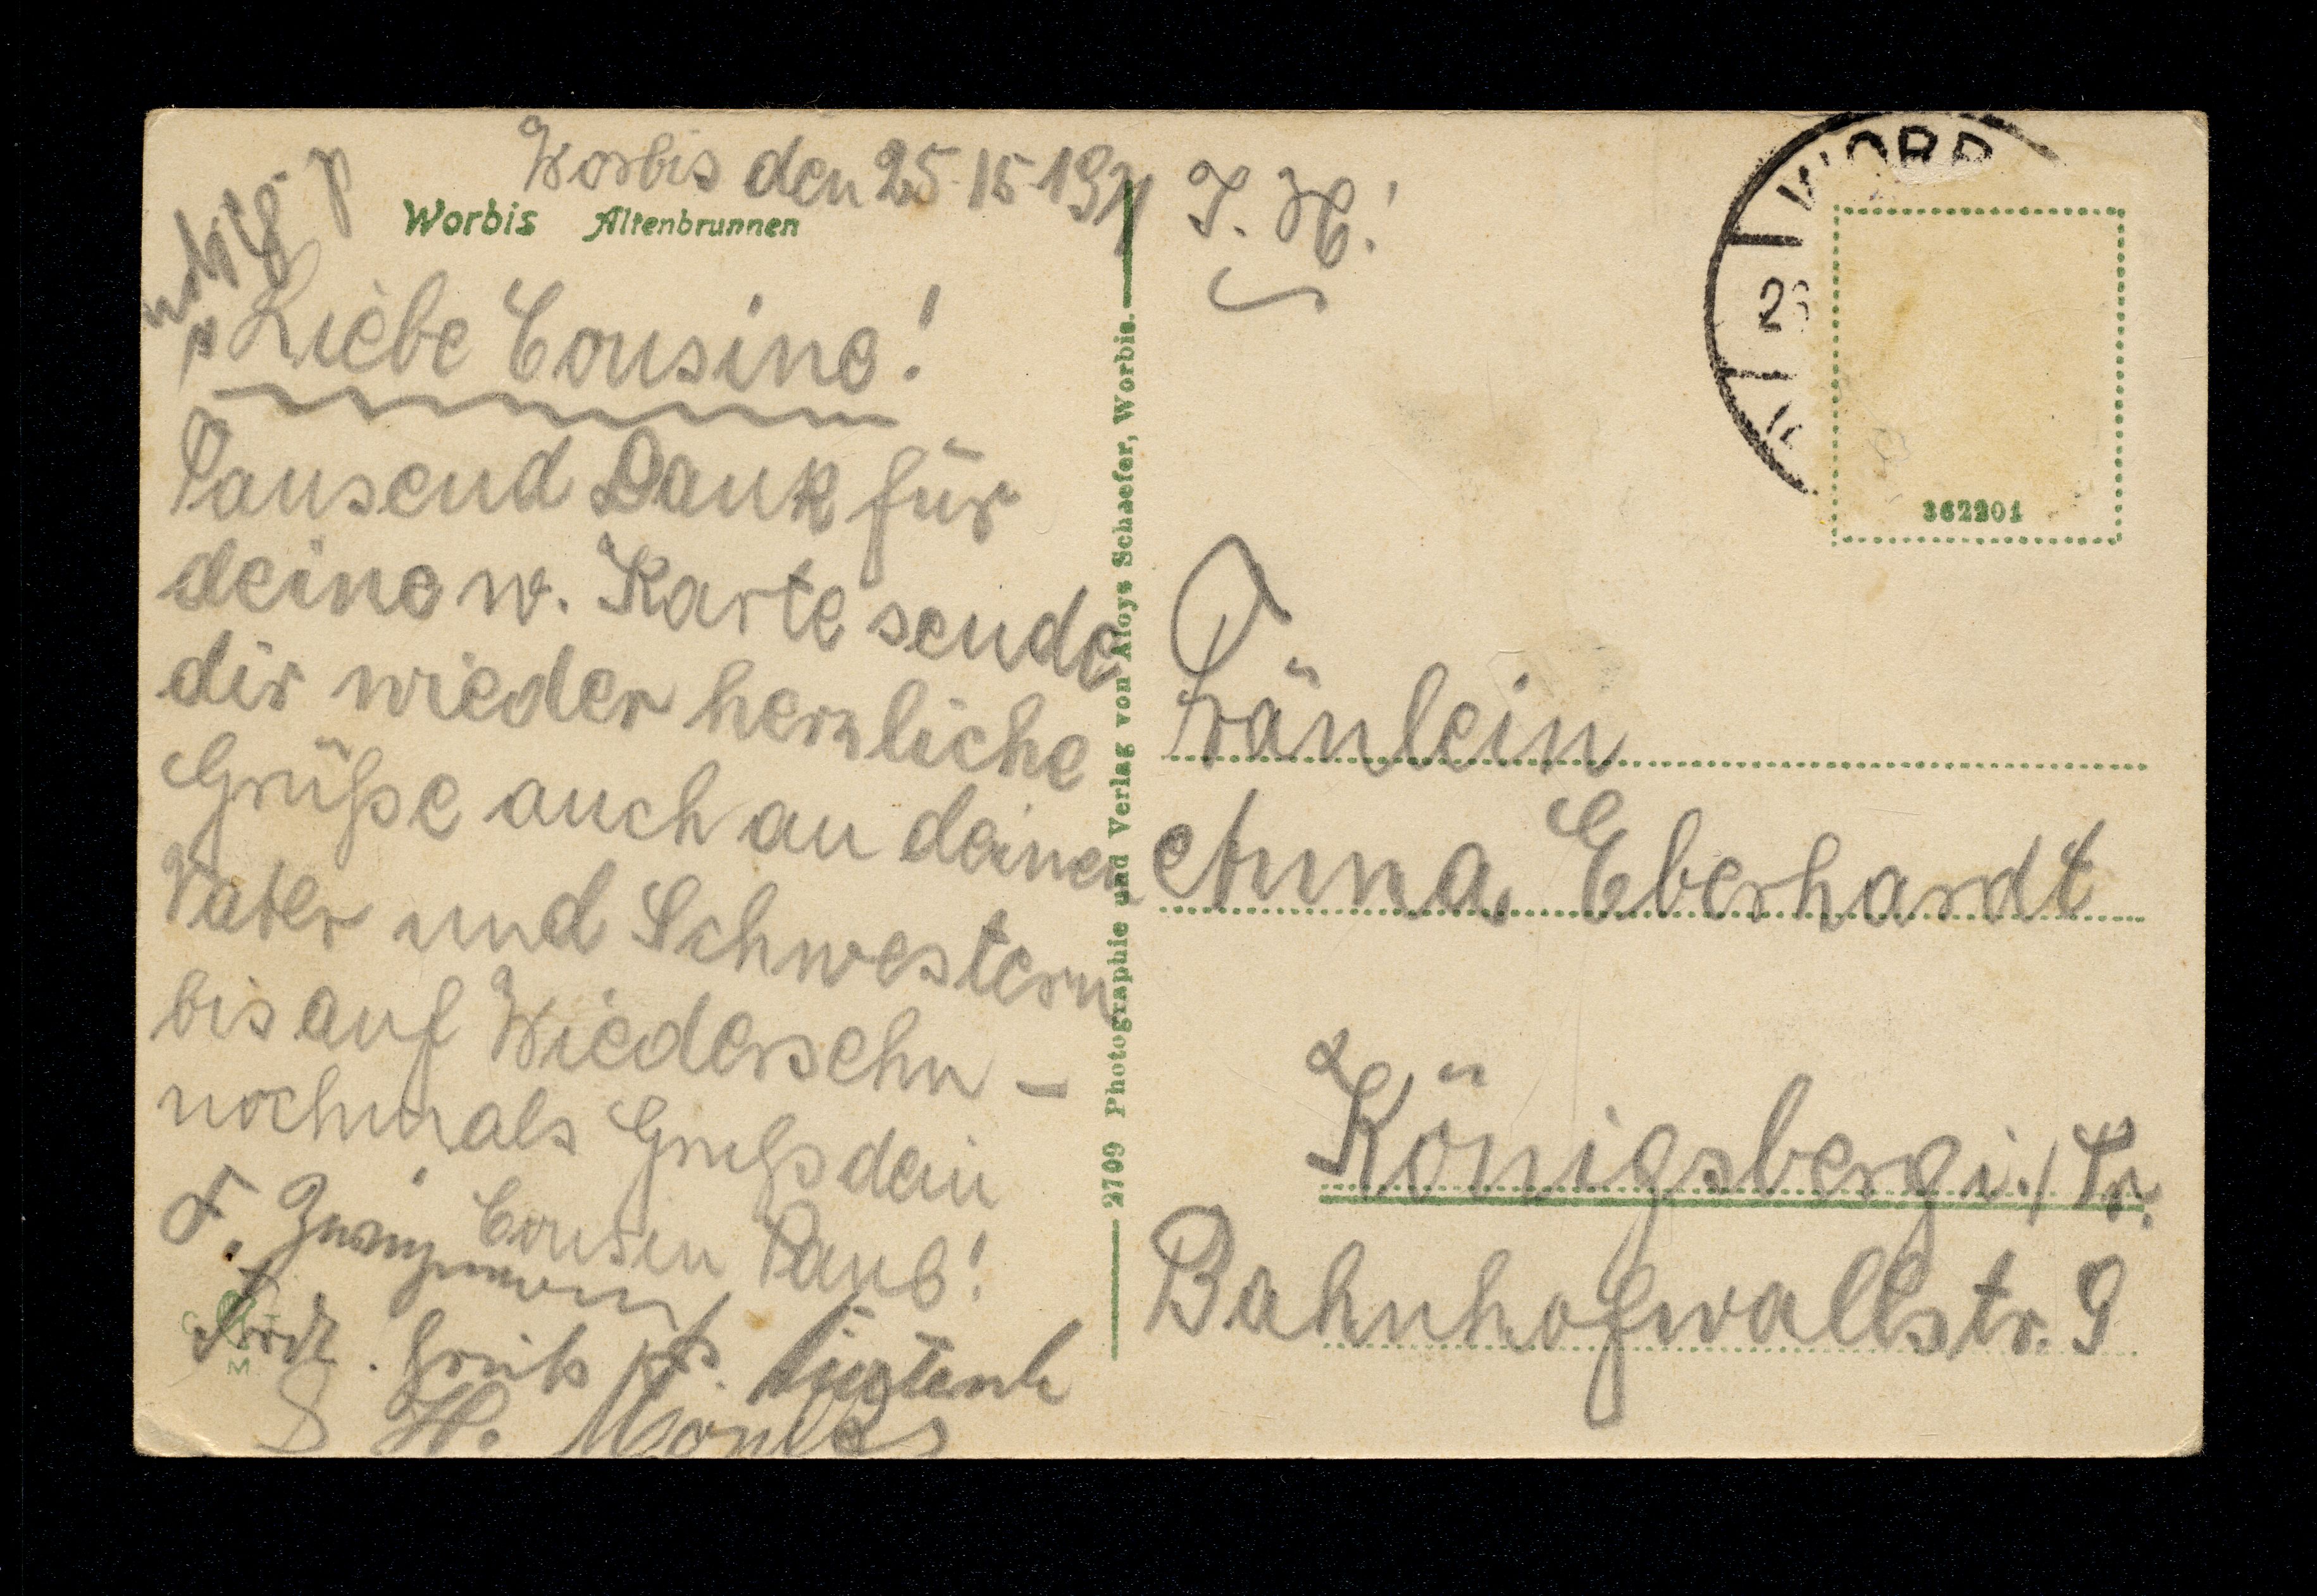 Worbis den 25.15.19
Worbis Altenbrunnen
Liebe Cousine!
Tausend Dank für
deine w. Karte sende
dir wieder herzliche
Grüße auch an deinen
Vater und Schwestern
bis auf Wiedersehn –
nochmals Gruß dein
Cousin Paul!
F.
H.
2709 Photographie und Verlag von Aloys Schaefer, Worbis.
J. H.!
WORB
362201
Fränlein
Anna Eberhardt
Königsberg i./Pr.
Bahnhofwallstr. 9